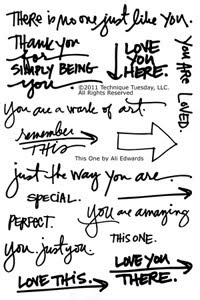 There is no one just like you.
THANK you
for
SIMPLY BEING
you
LOVE
YOU
HERE.
YOU ARE LOVED.
©2011 Technique Tuesday, LLC.
All Rights Reserved
You are a work of art.
remember
THIS
This One by Ali Edwards
just the way you are.
SPECIAL.
PERFECT.
You are amazing
THIS ONE.
You. Just you.
LOVE THIS.
LOVE YOU
THERE.